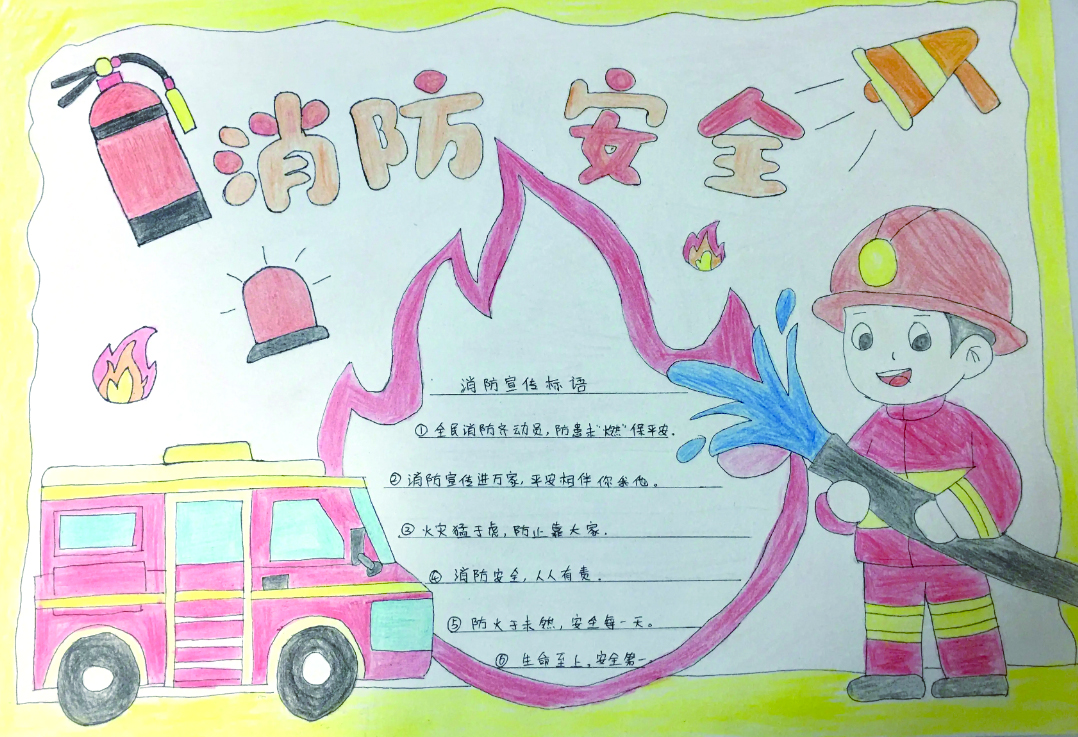 消防安全
消防宣传标语
① 全民消防齐动员，防患走“燃”保平安.
② 消防宣传进万家，平安相伴你我他。
③ 火灾猛于虎，防止靠大家.
④ 消防安全，人人有责.
⑤ 防火于未然，安全每一天。
⑥ 生命至上，安全第一.